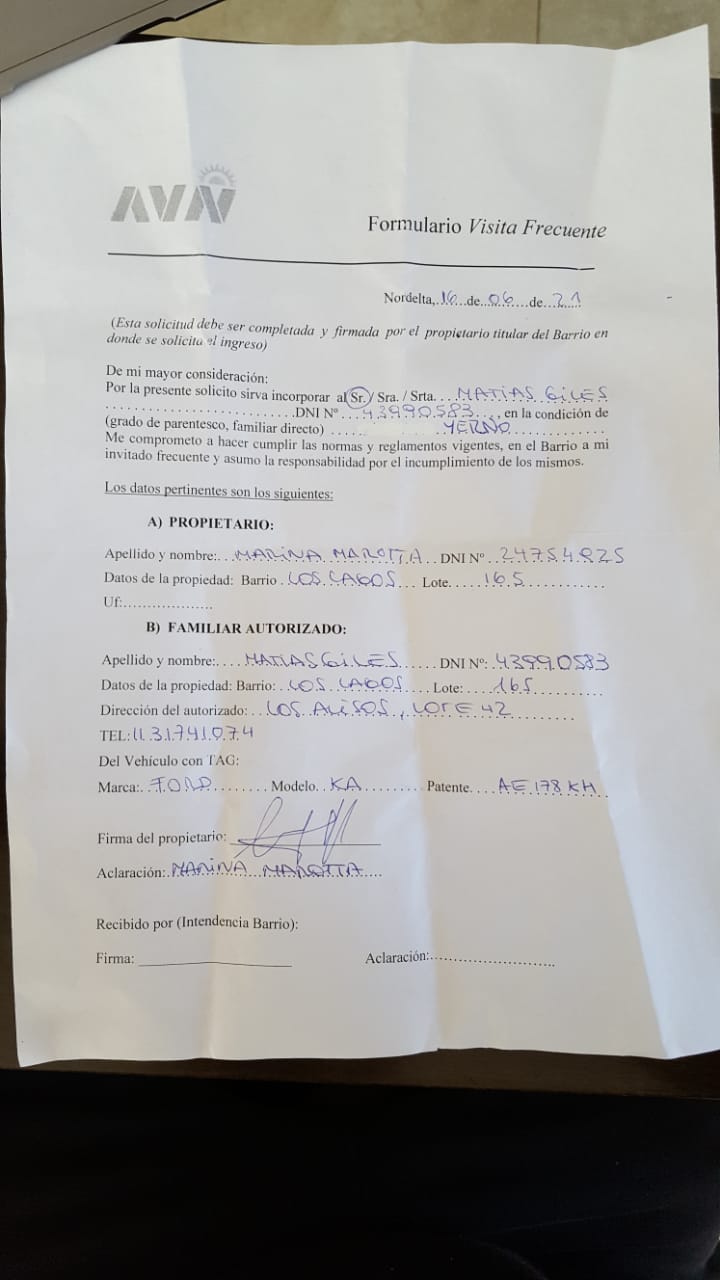 AVN
Formulario Visita Frecuente
Nordelta, 16 de 06 de 21
(Esta solicitud debe ser completada y firmada por el propietario titular del Barrio en
donde se solicita el ingreso)
De mi mayor consideración:
Por la presente solicito sirva incorporar al Sr. / Sra. / Srta. MATIAS GILES
DNI Nº 43990583, en la condición de
(grado de parentesco, familiar directo) YERNO
Me comprometo a hacer cumplir las normas y reglamentos vigentes, en el Barrio a mi
invitado frecuente y asumo la responsabilidad por el incumplimiento de los mismos.
Los datos pertinentes son los siguientes:
A) PROPIETARIO:
Apellido y nombre: MARINA MAROTTA DNI Nº
Datos de la propiedad: Barrio LOS LAGOS Lote. 165
Uf:
B) FAMILIAR AUTORIZADO:
Apellido y nombre: MATIAS GILES DNI Nº: 43990583
Datos de la propiedad: Barrio: LOS LAGOS Lote: 165
Dirección del autorizado: LOS ALISOS, LOTE 42
TEL: 1131741074
Del Vehículo con TAG:
Marca: FORD Modelo. KA Patente. AE 178 KH
Firma del propietario:
Aclaración: MARINA MAROTTA
Recibido por (Intendencia Barrio):
Firma: Aclaración: